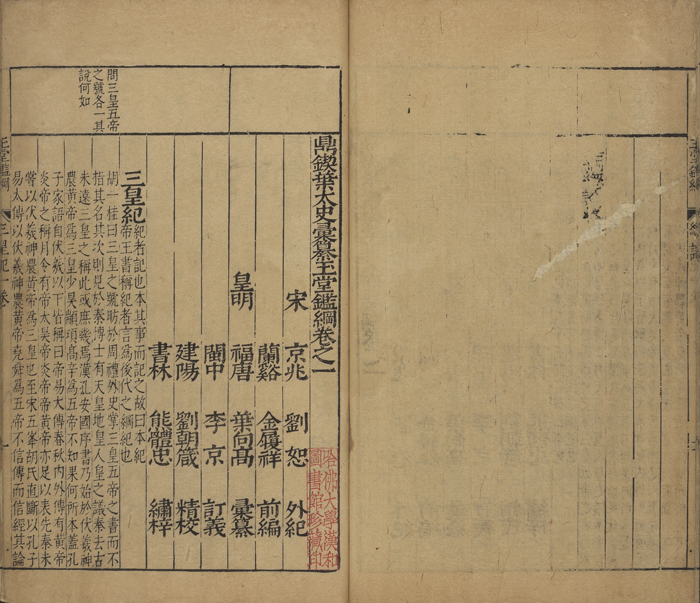 鼎鍥葉太史彙纂玉堂鑑綱卷之一
宋 京兆 劉恕 外紀
蘭谿 金履祥 前編
皇明 福唐 葉向高 彙纂
閩中 李京 訂義
建陽 劉朝箴 精校
書林 熊體忠 繡梓
哈佛大學漢和
圖書館珍藏印
問三皇五帝
之號各一其
說何如
三皇紀
紀者記也本其事而記之故曰本紀
帝王書稱紀者言為後代之綱紀也
胡一桂曰三皇之號昉於周禮外史掌三皇五帝之書而不
指其名其次則見於秦博士有天皇地皇人皇之議秦去古
未遠三皇之稱此或庶幾焉漢孔安國序書乃始於伏羲神
農黃帝為三皇少昊顓頊高辛為五帝不知果何所本蓋孔
子家語自伏羲以下皆稱曰帝易大傳春秋內外傳有黃帝
炎帝之稱月令有帝太昊帝炎帝黃帝亦足以表先秦未
嘗以伏羲神農黃帝為三皇也至宋五峯胡氏直斷以孔子
易大傳以伏羲神農黃帝堯舜為五帝不信傳而信經其論
玉堂鑑綱
三皇紀一卷
一
玉堂鑑綱